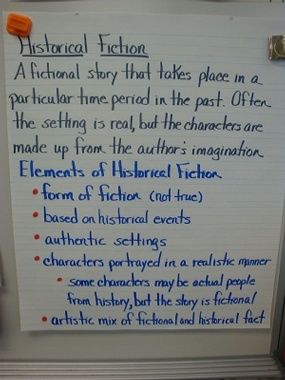 Historical Fiction
A fictional story that takes place in a
particular time period in the past. Often
the setting is real, but the characters are
made up from the author's imagination.
Elements of Historical Fiction
• form of fiction (not true)
• based on historical events
• authentic settings
• characters portrayed in a realistic manner
• some characters may be actual people
from history, but the story is fictional
• artistic mix of fictional and historical fact